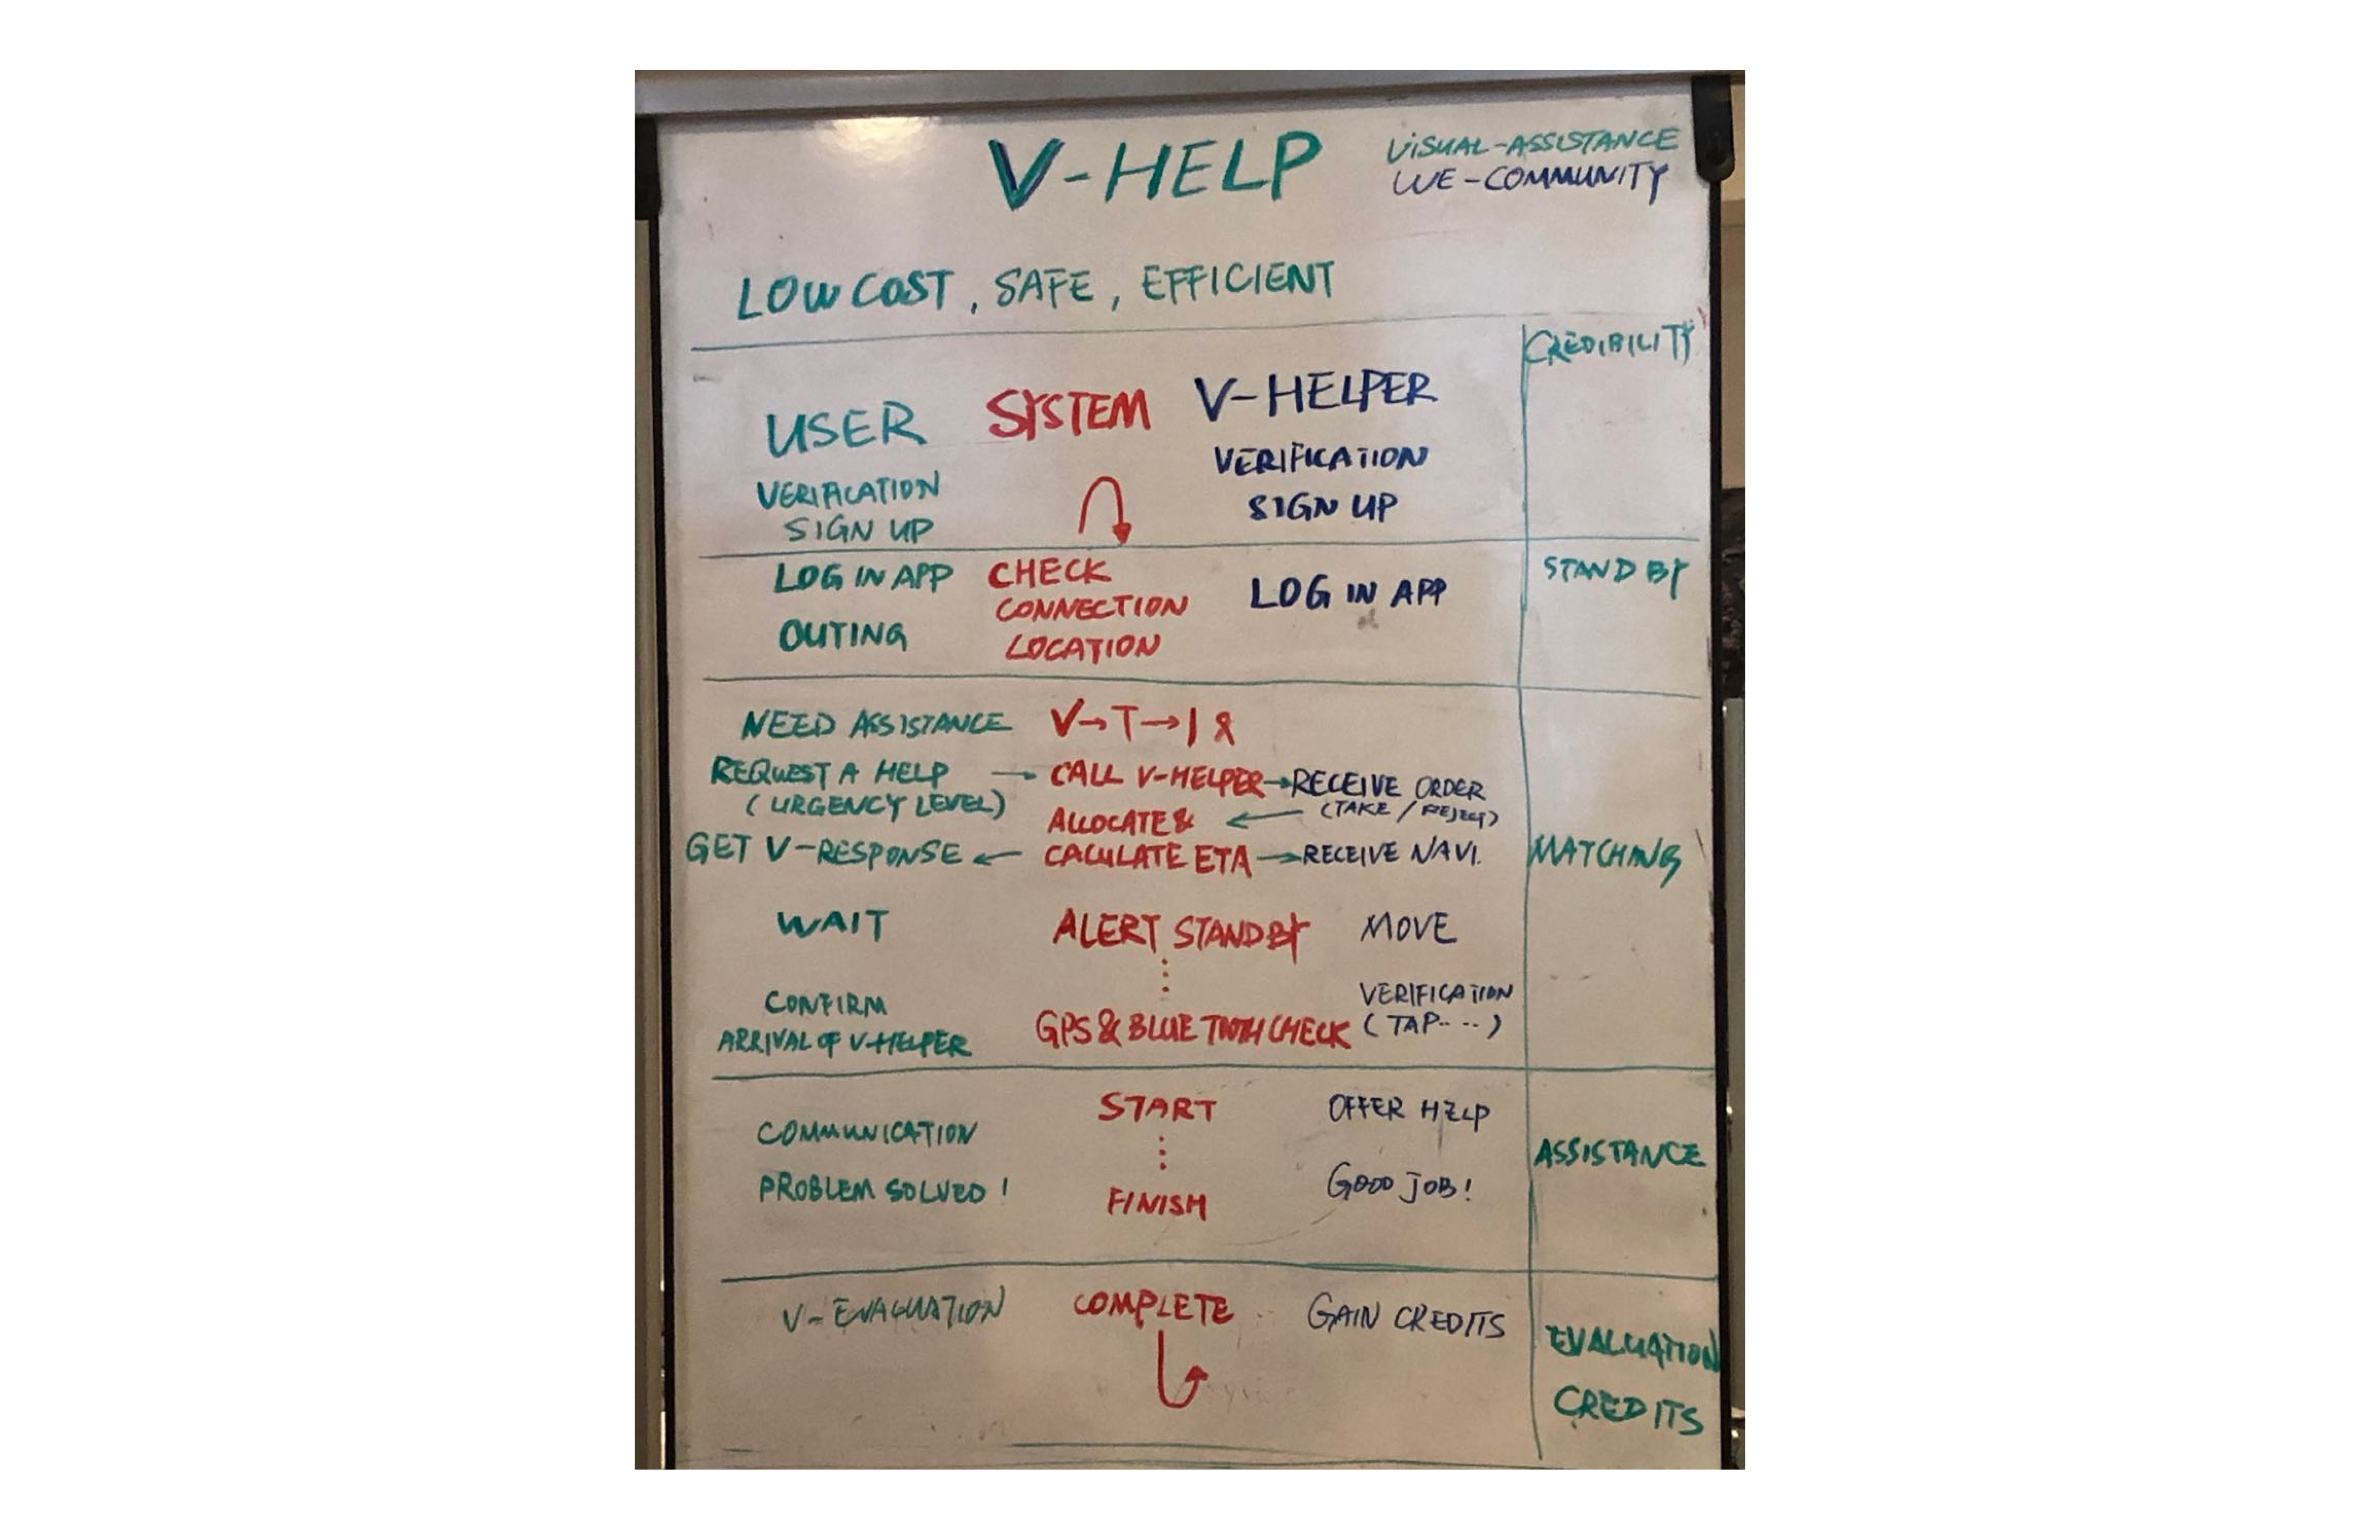 V-HELP
VISUAL-ASSISTANCE
WE-COMMUNITY
LOW COST, SAFE, EFFICIENT
CREDIBILITY
USER SYSTEM V-HELPER
VERIFICATION VERIFICATION
SIGN UP SIGN UP
LOG IN APP CHECK LOG IN APP STAND BY
CONNECTION
OUTING LOCATION
NEED ASSISTANCE V→T→
REQUEST A HELP → CALL V-HELPER → RECEIVE ORDER
(URGENCY LEVEL) ALLOCATE & ← (TAKE / REJECT)
GET V-RESPONSE ← CACULATE ETA → RECEIVE NAVI. MATCHING
WAIT ALERT STAND BY MOVE
CONFIRM VERIFICATION
ARRIVAL OF V-HELPER GPS & BLUE TOOTH CHECK (TAP....)
START OFFER HELP
COMMUNICATION ASSISTANCE
PROBLEM SOLVED! FINISH GOOD JOB!
COMPLETE GAIN CREDITS
EVALUATION
CREDITS